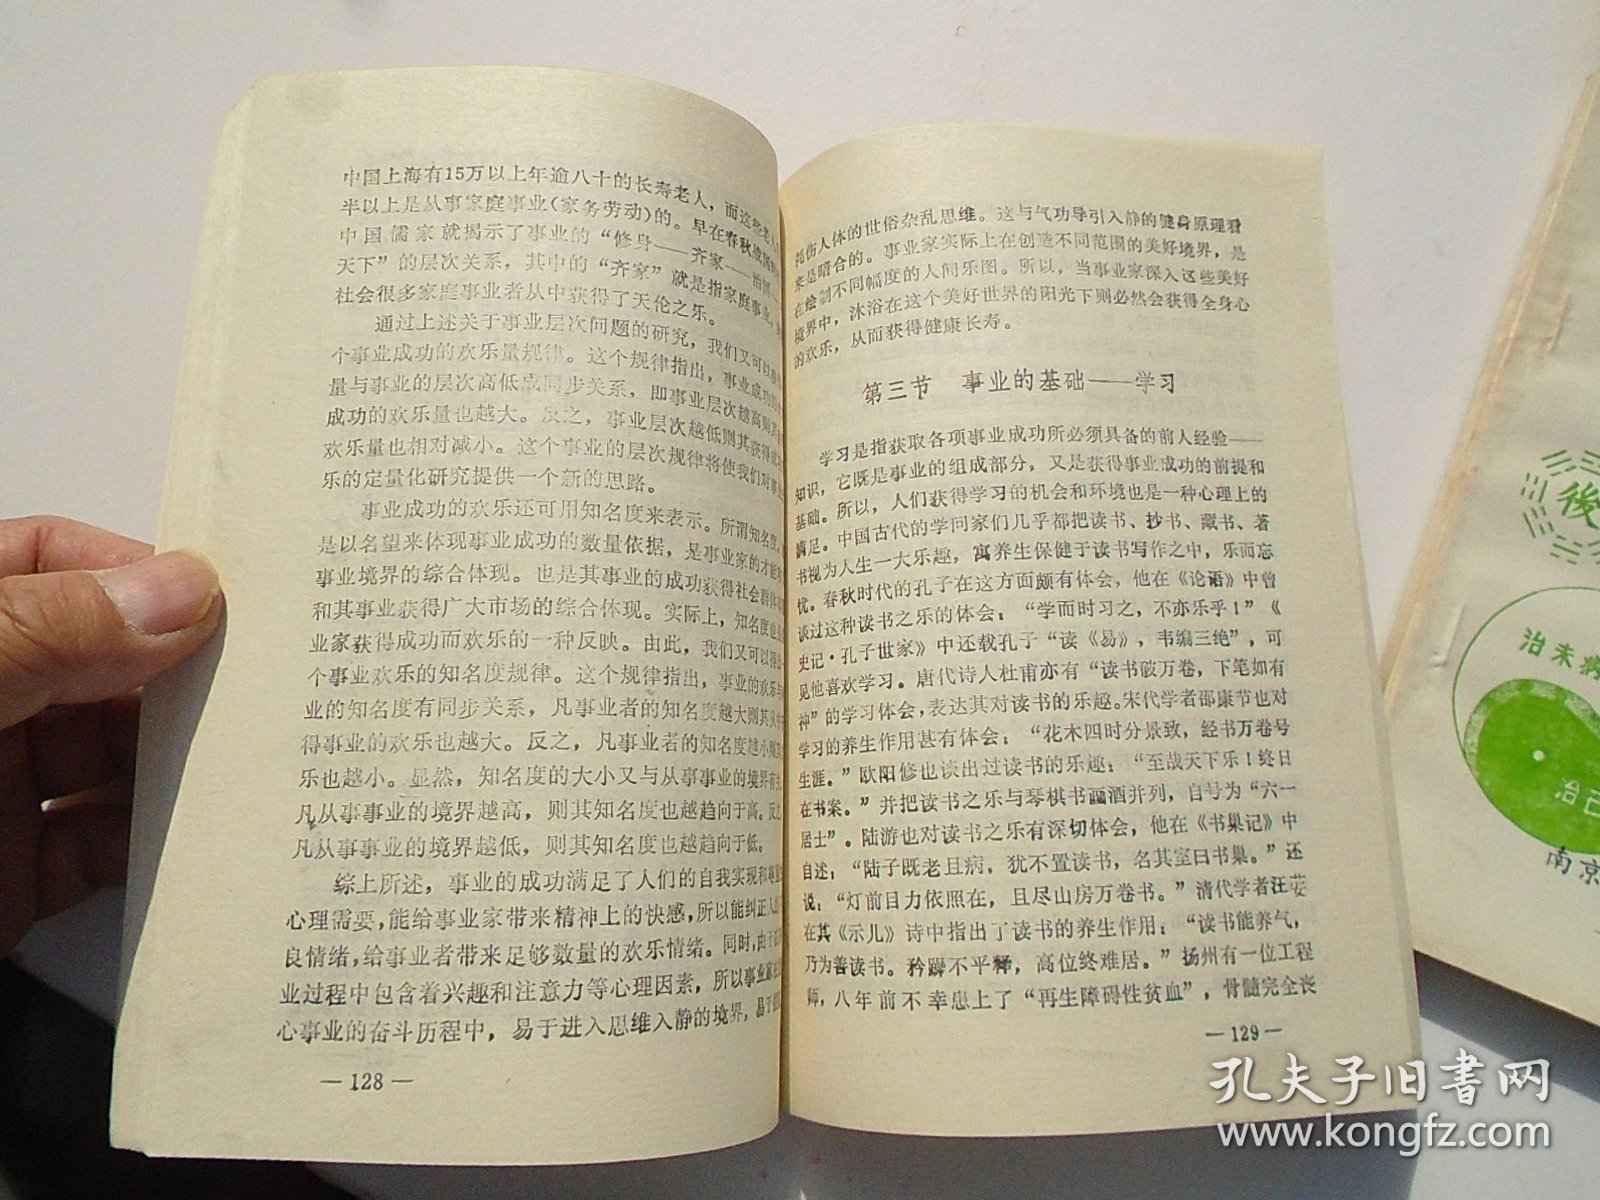 中国上海有15万以上年逾八十的长寿老人，而这些老人
半以上是从事家庭事业（家务劳动）的。早在春秋战国
中国儒家就揭示了事业的“修身——齐家——治国
天下”的层次关系，其中的“齐家”就是指家庭事业，
社会很多家庭事业者从中获得了天伦之乐。
通过上述关于事业层次问题的研究，我们又可以
个事业成功的欢乐量规律。这个规律指出，事业成功的
量与事业的层次高低成同步关系，即事业层次越高则其
成功的欢乐量也越大。反之，事业层次越低则其获得
欢乐量也相对减小。这个事业的层次规律将使我们对事业
乐的定量化研究提供一个新的思路。
事业成功的欢乐还可用知名度来表示。所谓知名度，
是以名望来体现事业成功的数量依据，是事业家的才能
事业境界的综合体现。也是其事业的成功获得社会群体
和其事业获得广大市场的综合体现。实际上，知名度也
业家获得成功而欢乐的一种反映。由此，我们又可以
个事业欢乐的知名度规律。这个规律指出，事业的欢乐与
业的知名度有同步关系，凡事业者的知名度越大则其
得事业的欢乐也越大。反之，凡事业者的知名度越小
乐也越小。显然，知名度的大小又与从事事业的境界有
凡从事事业的境界越高，则其知名度也越趋向于高。反
凡从事事业的境界越低，则其知名度也越趋向于低。
综上所述，事业的成功满足了人们的自我实现和
心理需要，能给事业家带来精神上的快感，所以能纠正人
良情绪，给事业者带来足够数量的欢乐情绪。同时，由于
业过程中包含着兴趣和注意力等心理因素，所以事业家
心事业的奋斗历程中，易于进入思维入静的境界，易于
—128—
伤人体的世俗杂乱思维。这与气功导引入静的健身原理看
来是暗合的。事业家实际上在创造不同范围的美好境界，是
在绘制不同幅度的人间乐图。所以，当事业家深入这些美好
境界中，沐浴在这个美好世界的阳光下则必然会获得全身心
的欢乐，从而获得健康长寿。
第三节　事业的基础——学习
学习是指获取各项事业成功所必须具备的前人经验——
知识，它既是事业的组成部分，又是获得事业成功的前提和
基础。所以，人们获得学习的机会和环境也是一种心理上的
满足。中国古代的学问家们几乎都把读书、抄书、藏书、著
书视为人生一大乐趣，寓养生保健于读书写作之中，乐而忘
忧。春秋时代的孔子在这方面颇有体会，他在《论语》中曾
谈过这种读书之乐的体会：“学而时习之，不亦乐乎！”《
史记·孔子世家》中还载孔子“读《易》，韦编三绝”，可
见他喜欢学习。唐代诗人杜甫亦有“读书破万卷，下笔如有
神”的学习体会，表达其对读书的乐趣。宋代学者邵康节也对
学习的养生作用甚有体会：“花木四时分景致，经书万卷号
生涯。”欧阳修也谈出过读书的乐趣：“至哉天下乐！终日
在书案。”并把读书之乐与琴棋书画酒并列，自号为“六一
居士”。陆游也对读书之乐有深切体会，他在《书巢记》中
自述：“陆子既老且病，犹不置读书，名其室曰书巢。”还
说：“灯前目力依照在，且尽山房万卷书。”清代学者汪
在其《示儿》诗中指出了读书的养生作用：“读书能养气，
乃为善读书。矜躁不平释，高位终难居。”扬州有一位工程
师，八年前不幸患上了“再生障碍性贫血”，骨髓完全丧
—129—
後
治未病
治已
南京
孔夫子旧書网
www.kongfz.com